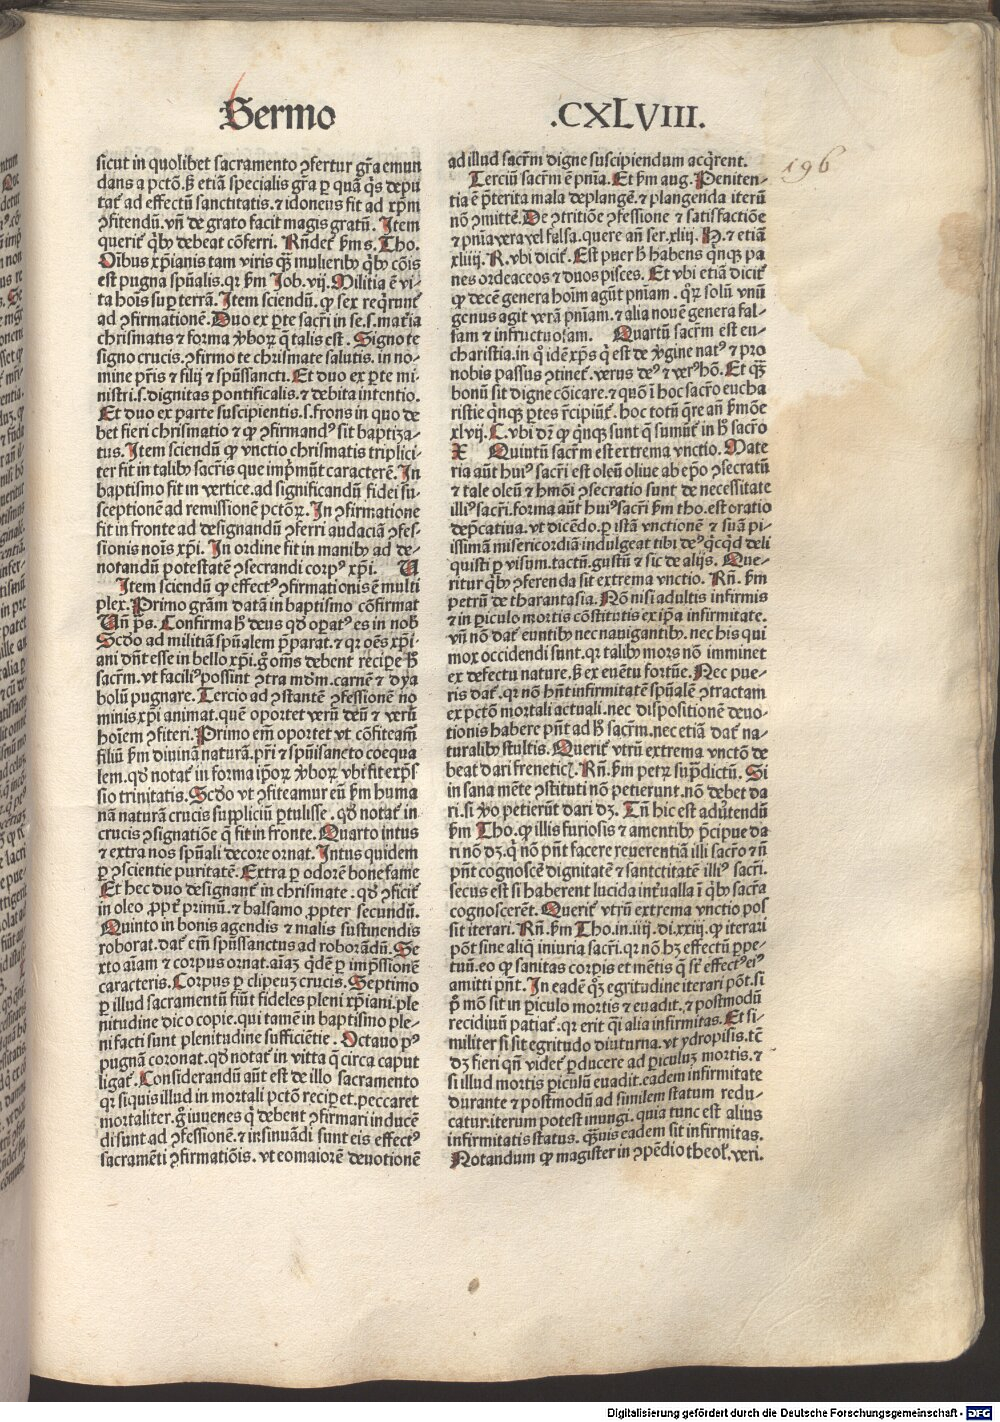 Sermo
.CXLVIII.
196
sicut in quolibet sacramento ꝯfertur grã emun
dans a pctõ. ß etiã specialis grã ꝑ quã q̃s depu
tat᷑ ad effectũ sanctitatis. ⁊ idoneus fit ad xp̃m
ꝯfitendũ. vñ de grato facit magis gratũ. Item
querit᷑ qͥbꝰ debeat cõferri. Rñdet ẜm s. Tho.
Oĩbus xp̃ianis tam viris qꝫ̃ mulieribꝰ qͥbꝰ cõis
est pugna spũalis. qꝛ ẜm Job. vij. Militia ẽ vi-
ta hoĩs suꝑ terrã. Item sciendũ. ꝙ sex reqͥrunt᷑
ad ꝯfirmationẽ. Duo ex ꝑte sacr̃i in se. s. mat̾ia
chrismatis ⁊ forma v̾boꝝ q̃ talis est. Signo te
signo crucis. ꝯfirmo te chrismate salutis. in no-
mine pr̃is ⁊ filij ⁊ spũssancti. Et duo ex ꝑte mi-
nistri. s. dignitas pontificalis. ⁊ debita intentio.
Et duo ex parte suscipientis. s. frons in quo de
bet fieri chrismatio ⁊ ꝙ ꝯfirmandꝰ sit baptiza-
tus. Item sciendũ ꝙ vnctio chrismatis triplici-
ter fit in talibꝰ sacr̃is que imp̃mũt caracterẽ. In
baptismo fit in vertice. ad significandũ fidei su-
sceptionẽ ad remissionẽ pctõꝝ. In ꝯfirmatione
fit in fronte ad designandũ ꝯferri audaciã ꝯfes-
sionis noĩs xp̃i. In ordine fit in manibꝰ ad de-
notandũ potestatẽ ꝯsecrandi corpꝰ xp̃i. U
Item sciendũ ꝙ effectꝰ ꝯfirmationis ẽ multi
plex. Primo grãm datã in baptismo cõfirmat
Uñ p̃s. Confirma h̾ deus qd̾ oꝑatꝰ es in nob̾
Scd̾o ad militiã spũalem p̃parat. ⁊ qꝛ oẽs xp̃i-
ani dñt esse in bello xp̃i. g̾ om̃s debent reciꝑe h̾
sacr̃m. vt faciliꝰ possint ꝯtra mũdm. carnẽ ⁊ dya
bolũ pugnare. Tercio ad ꝯstantẽ ꝯfessionẽ no
minis xp̃i animat. quẽ oportet verũ deũ ⁊ verũ
hoĩem ꝯfiteri. Primo em̃ oportet vt cõfiteam᷑
filiũ ẜm divinã naturã. pr̃i ⁊ spũisancto coequa
lem. qd̾ notat᷑ in forma ip̃oꝝ v̾boꝝ vbi fit exp̃s
sio trinitatis. Scd̾o vt ꝯfiteamur eũ ẜm huma
nã naturã crucis suppliciũ ꝑtulisse. qd̾ notat᷑ in
crucis ꝯsignatiõe q̃ fit in fronte. Quarto intus
⁊ extra nos spũali decore ornat. Intus quidem
ꝑ ꝯscientie puritatẽ. Extra ꝑ odorẽ bone fame
Et hec duo designant᷑ in chrismate. qd̾ ꝯficit᷑
in oleo ꝓpt̾ primũ. ⁊ balsamo ꝓpter secundũ.
Quinto in bonis agendis ⁊ malis sustinendis
roborat. dat᷑ em̃ spũssanctus ad roborãdũ. Se
xto aĩam ⁊ corpus ornat. aĩaꝫ qͥdẽ ꝑ imp̃ssionẽ
caracteris. Corpus ꝑ clipeuꝫ crucis. Septimo
ꝑ illud sacramentũ fiũt fideles pleni xp̃iani. ple
nitudine dico copie. qui tamẽ in baptismo ple-
ni facti sunt plenitudine sufficiẽtie. Octauo ꝑꝰ
pugnã coronat. qd̾ notat᷑ in vitta q̃ circa caput
ligat᷑. Considerandũ aũt est de illo sacramento
qꝛ si quis illud in mortali pctõ reciꝑet. peccaret
mortaliter. g̾ iuuenes qͥ debent ꝯfirmari inducẽ
di sunt ad ꝯfessionẽ. ⁊ insinuãdi sunt eis effectꝰ
sacramẽti ꝯfirmatiõis. vt eo maiorẽ deuotionẽ
ad illud sacr̃m digne suscipiendum acqͥrent.
Terciũ sacr̃m ẽ pñia. Et ẜm aug. Peniten-
tia ẽ p̃terita mala deplange᷑. ⁊ plangenda iterũ
nõ ꝯmitte᷑. De ꝯtritiõe ꝯfessione ⁊ satisfactiõe
⁊ pñia vera vel falsa. quere añ ser. xliij. P. ⁊ etiã
xliiij. R. vbi dicit᷑. Est puer h̾ habens qͥnqꝫ pa
nes ordeaceos ⁊ duos pisces. Et vbi etiã dicit᷑
ꝙ decẽ genera hoĩm agũt pñiam. qͦꝝ solũ vnũ
genus agit verã pñiam. ⁊ alia nouẽ genera fal-
sam ⁊ infructuosam. Quartũ sacr̃m est eu-
charistia. in qͦ idẽ xp̃s qͥ est de v̾gine natꝰ ⁊ pro
nobis passus ꝯtinet᷑. verus deꝰ ⁊ verꝰ hõ. Et qꝫ̃
bonũ sit digne cõicare. ⁊ quõ ĩ hoc sacr̃o eucha
ristie qͥnqꝫ ꝑtes r̃cipiũt᷑. hoc totũ q̃re añ ẜmõe
xlvij. C. vbi dr̃ ꝙ qͥnqꝫ sunt q̃ sumũt᷑ in h̾ sacr̃o
X Quintũ sacr̃m est extrema vnctio. Mate
ria aũt huiꝰ sacr̃i est oleũ oliue ab ep̃o ꝯsecratũ
⁊ tale oleũ ⁊ hmõi ꝯsecratio sunt de necessitate
illiꝰ sacr̃i. forma aũt huiꝰ sacr̃i ẜm tho. est oratio
dep̃catiua. vt dicẽdo. ꝑ istã vnctionẽ ⁊ suã pi-
issimã misericordiã indulgeat tibi deꝰ qͥcqͥd deli
quisti ꝑ visum. tactũ. gustũ ⁊ sic de alijs. Que-
ritur qͥbꝰ ꝯferenda sit extrema vnctio. Rñ. ẜm
petrũ de tharantasia. Nõ nisi adultis infirmis
⁊ in ꝑiculo mortis cõstitutis ex ip̃a infirmitate.
vñ nõ dat᷑ euntibꝰ nec nauigantibꝰ. nec his qui
mox occidendi sunt. qꝛ talibꝰ mors nõ imminet
ex defectu nature. ß ex euẽtu fortũe. Nec pue-
ris dat᷑. qꝛ nõ hñt infirmitatẽ spũalẽ ꝯtractam
ex pctõ mortali actuali. nec dispositionẽ deuo-
tionis habere pñt ad h̾ sacr̃m. nec etiã dat᷑ na-
turalibꝰ stultis. Querit᷑ vtrũ extrema vnctõ de
beat dari frenetic᷑. Rñ. ẜm petꝝ sup̃dictũ. Si
in sana mẽte ꝯstituti nõ petierunt. nõ debet da
ri. si v̾o petierũt dari dꝫ. Tñ hic est adũtendũ
ẜm Tho. ꝙ illis furiosis ⁊ amentibꝰ p̃cipue da
ri nõ dꝫ. qͥ nõ pñt facere reuerentiã illi sacr̃o ⁊ ñ
pñt cognoscẽ dignitatẽ ⁊ sanctctitatẽ illiꝰ sacr̃i.
secus est si haberent lucida int̾ualla ĩ qͥbꝰ sacr̃a
cognoscerẽt. Querit᷑ vtrũ extrema vnctio pos
sit iterari. Rñ. ẜm Tho. in. iiij. di. xxiij. ꝙ iterari
põt sine aliq̃ iniuria sacr̃i. qꝛ nõ hꝫ effectũ ꝑpe-
tuũ. eo ꝙ sanitas corꝑis et mẽtis q̃ st̃ effectꝰ eiꝰ
amitti pñt. In eadẽ qꝫ egritudine iterari põt. si
p̃ mõ sit in ꝑiculo mortis ⁊ euadit. ⁊ postmodũ
recidiuũ patiat᷑. qꝛ erit q̃i alia infirmitas. Et si-
militer si sit egritudo diuturna. vt ydropisis. tc̃
dꝫ fieri qñ videt᷑ ꝑducere ad ꝑiculuꝫ mortis. ⁊
si illud mortis ꝑiculũ euadit. eadem infirmitate
durante ⁊ postmodũ ad similem statum redu-
catur. iterum potest inungi. quia tunc est alius
infirmitatis status. qꝫ̃uis eadem sit infirmitas.
Notandum ꝙ magister in ꝯpẽdio theol᷑. veri.
Digitalisierung gefördert durch die Deutsche Forschungsgemeinschaft - DFG